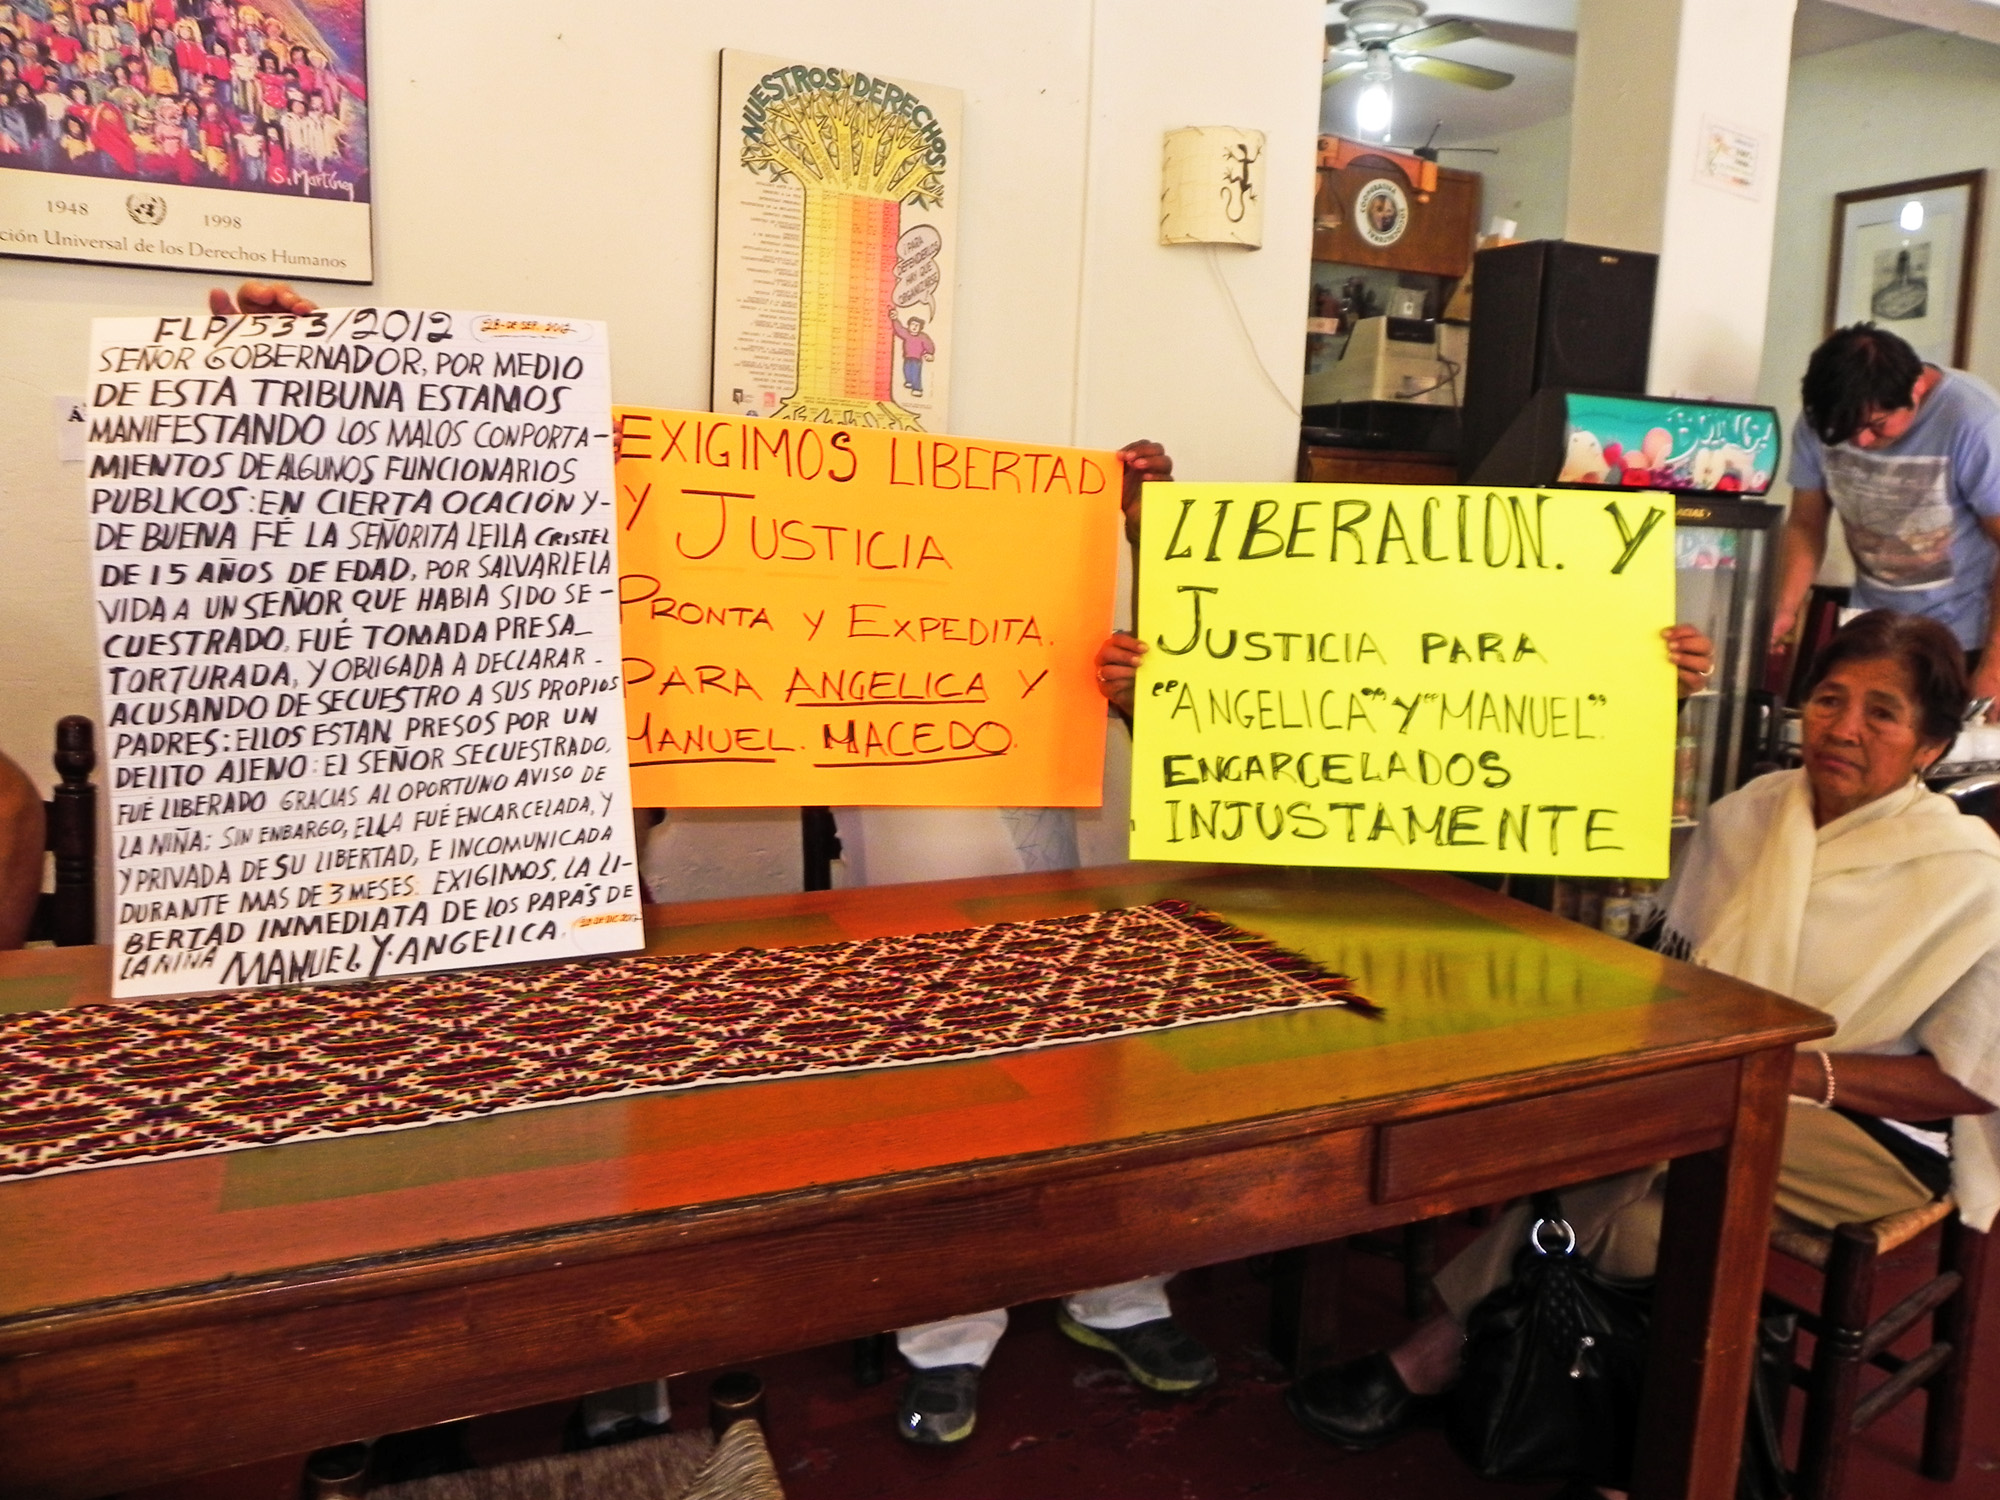 S. Martínez
1948 1998
ción Universal de los Derechos Humanos
NUESTROS DERECHOS
¡PARA
DEFENDERLOS
HAY QUE
ORGANIZARSE
FLP/533/2012 28-DE SEP. 2012
SEÑOR GOBERNADOR, POR MEDIO
DE ESTA TRIBUNA ESTAMOS
MANIFESTANDO LOS MALOS CONPORTA-
MIENTOS DE ALGUNOS FUNCIONARIOS
PUBLICOS: EN CIERTA OCACIÓN Y-
DE BUENA FÉ LA SEÑORITA LEILA CRISTEL
DE 15 AÑOS DE EDAD, POR SALVARLE LA
VIDA A UN SEÑOR QUE HABIA SIDO SE-
CUESTRADO, FUÉ TOMADA PRESA_
TORTURADA, Y OBLIGADA A DECLARAR-
ACUSANDO DE SECUESTRO A SUS PROPIOS
PADRES: ELLOS ESTAN PRESOS POR UN
DELITO AJENO: EL SEÑOR SECUESTRADO,
FUÉ LIBERADO GRACIAS AL OPORTUNO AVISO DE
LA NIÑA; SIN ENBARGO, ELLA FUÉ ENCARCELADA, Y
Y PRIVADA DE SU LIBERTAD, E INCOMUNICADA
DURANTE MAS DE 3 MESES. EXIGIMOS, LA LI-
BERTAD INMEDIATA DE LOS PAPÁS DE
LA NIÑA MANUEL Y ANGELICA.
EXIGIMOS LIBERTAD
Y JUSTICIA
PRONTA Y EXPEDITA.
PARA ANGELICA Y
MANUEL. MACEDO.
LIBERACION. Y
JUSTICIA PARA
"ANGELICA" Y "MANUEL".
ENCARCELADOS
INJUSTAMENTE
BOING!